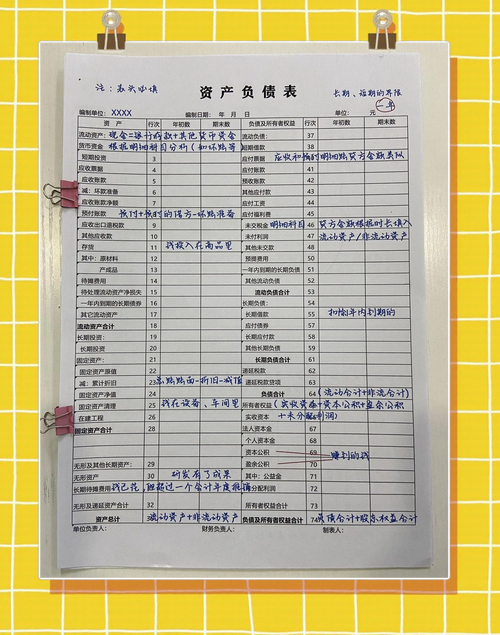 注：表头必填
资产负债表
长期、短期的界限
一年
编制单位：XXXX 编制日期： 年 月 日 单位： 元
资 产 行次 年初数 期末数 负债及所有者权益 行次 年初数 期末数
流动资产： 现金=银行存款+其他货币资金 流动负债： 37
货币资金 根据明细科目分析（如坏账等 短期借款 38
短期投资 3 应付票据 应收和预付明细账贷方余额类似
应收票据 4 应付账款 41
应收账款 5 预收账款 42
减：坏款准备 6 其他应付款 43
应收账款净额 7 应付工资 44
预付账款 预付+预付的借方-坏账准备 应付福利费 45
应收出口退税款 9 未交税金 明细科目 46 贷方余额根据时长填入
其他应收款 10 未付利润 47 流动资产/非流动资产
存货 11 钱投入在商品里 其他未交款 48
其中：原材料 12 预提费用 50
产成品 13 一年内到期的长期负债 51
待摊费用 14 其他流动负债 52
待处理流动资产净损失 15 流动负债合计 53
一年内到期的长期债券 16 长期负债： 54
其它流动资产 17 长期借款 55 扣除年内到期的
流动资产合计 18 应付债券 57
长期投资： 19 长期应付款 58
长期投资 20 其他长期负债 59
固定资产： 21 长期负债合计 61
固定资产原值 22 递延税款 62
减：累计折旧 23 账面-折旧-减值 递延税款贷项 63
固定资产净值 24 负债合计 64 （流动合计+非流合计）
固定资产清理 25 钱在设备、车间里 所有者权益 （实收资本+资本公积+盈余公积
在建工程 26 实收资本 +未分配利润）
固定资产合计 28 法人资本金 67
个人资本金 68
资本公积 69 赚到的钱
无形及其他长期资产： 29 盈余公积 70
无形资产 30 研发有了成果 其中：公益金 71
长期待摊费用 钱已花，但超过一个会计年度摊销 未分配利润 72
无形及递延资产合计 32 所有者权益合计 73
资产总计 流动资产+非流动资产 负债及所有者权益合计 74 负债合计+股东权益合计
单位负责人： 财务负责人： 制表人：